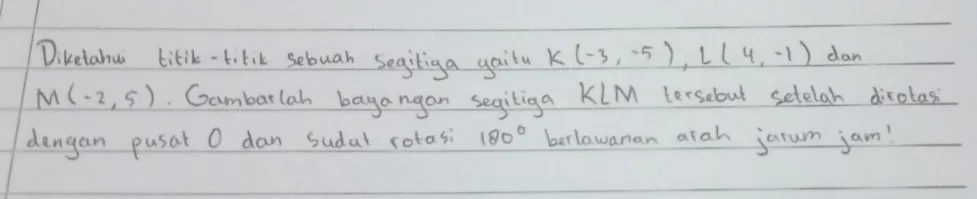 Diketahui titik-titik sebuah segitiga yaitu K (-3, -5), L (4, -1) dan
M(-2, 5). Gambarlah bayangan segitiga KLM tersebut setelah dirotasi
dengan pusat O dan sudut rotasi 180° berlawanan arah jarum jam!